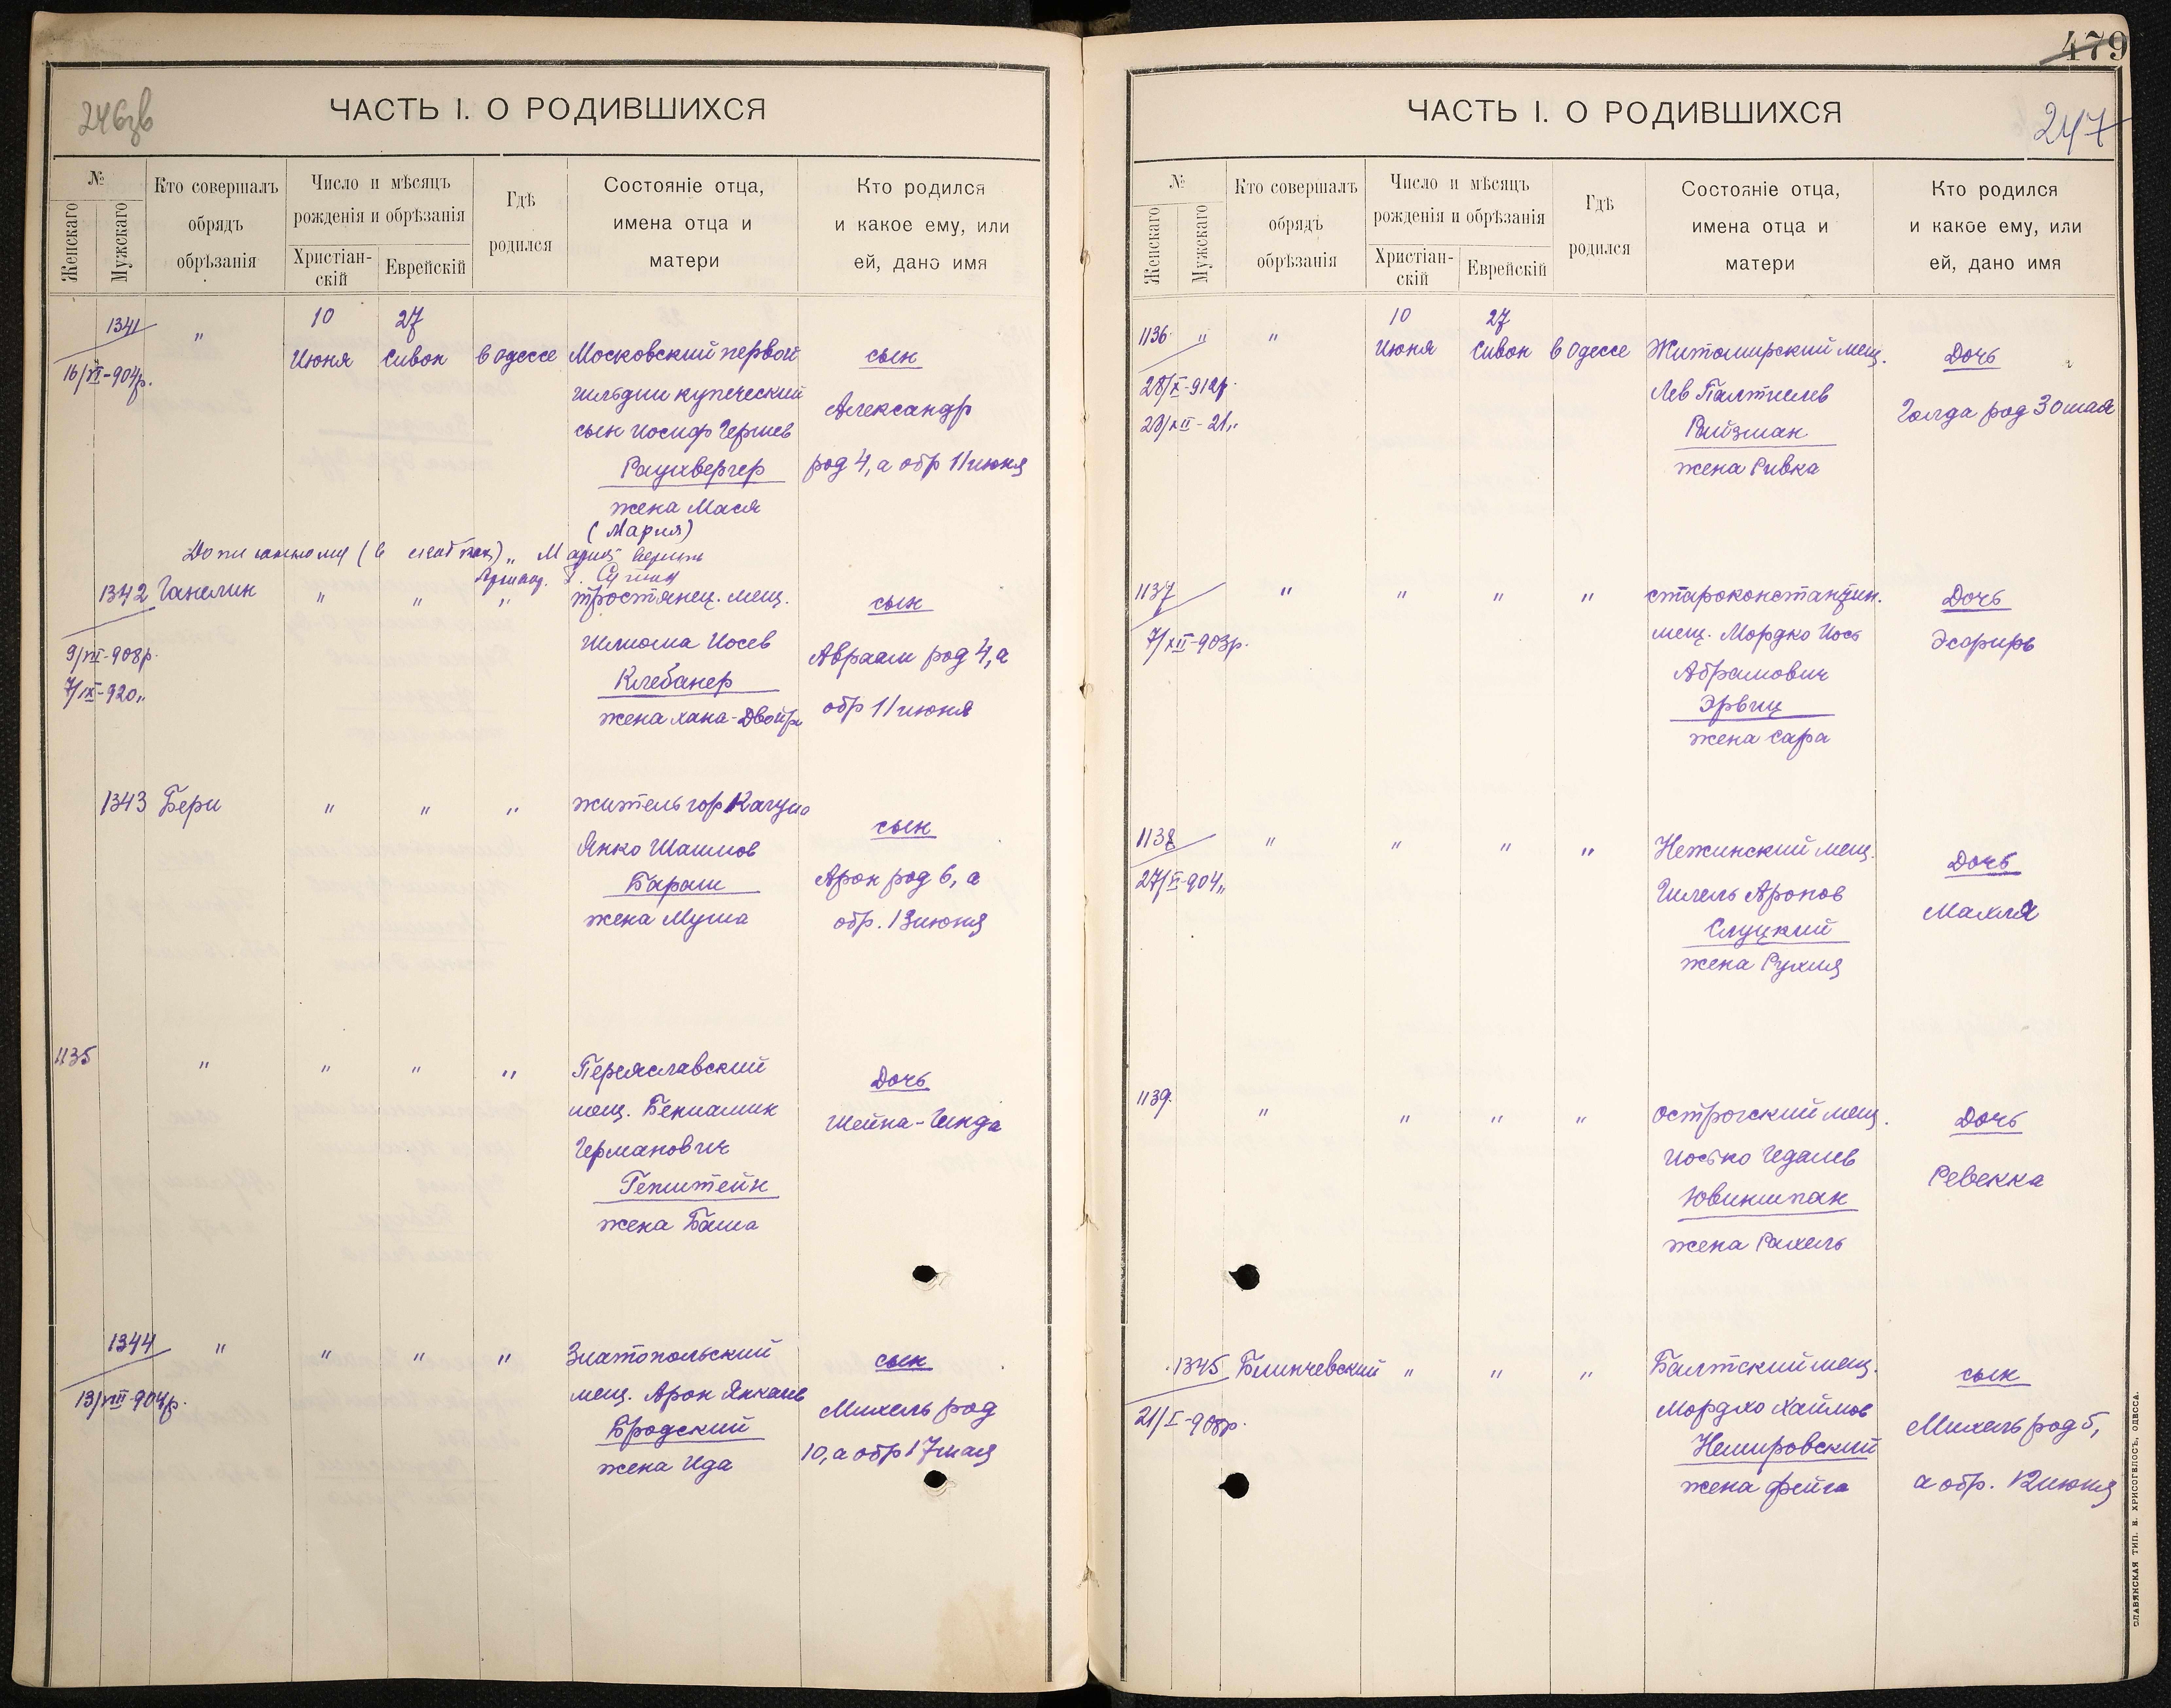 246зв
ЧАСТЬ I. О РОДИВШИХСЯ
№
Женскаго
Мужскаго
Кто совершалъ
обрядъ
обрѣзанія
Число и мѣсяцъ
рожденія и обрѣзанія
Христіан-
скій
Еврейскій
Гдѣ
родился
Состояніе отца,
имена отца и
матери
Кто родился
и какое ему, или
ей, дано имя
1341
16/VI-904р.
"
10
Июня
27
Сивон
в Одессе
Московский первой
гильдии купеческий
сын Иосиф Гершев
Раухвергер
жена Мася
(Мария)
сын
Александр
род 4, а обр 11 июня
"Мария" верить
1342
9/VII-908р.
7/IX-920"
Ганелин
"
"
"
тростянец. мещ.
Шлиома Иосев
Клебанер
жена Хана-Двойра
сын
Авраам род 4, а
обр 11 июня
1343
Бери
"
"
"
житель гор Кагула
Янко Шашиов
Бараш
жена Муша
сын
Арон род 6, а
обр. 13 июня
1135
"
"
"
"
Переяславский
мещ. Бениамин
Германович
Гепштейн
жена Баша
Дочь
Шейна-Гинда
1344
13/VIII-904р.
"
"
"
"
Златопольский
мещ. Арон Янкелев
Бродский
жена Ида
сын
Михель род
10, а обр 17 мая
479
247
ЧАСТЬ I. О РОДИВШИХСЯ
№
Женскаго
Мужскаго
Кто совершалъ
обрядъ
обрѣзанія
Число и мѣсяцъ
рожденія и обрѣзанія
Христіан-
скій
Еврейскій
Гдѣ
родился
Состояніе отца,
имена отца и
матери
Кто родился
и какое ему, или
ей, дано имя
1136
28/X-912р.
28/XII-21"
"
"
10
Июня
27
Сивон
в Одессе
Житомирский мещ.
Лев Палтиелев
Райзман
жена Ривка
Дочь
Голда род 30 мая
1137
7/XII-903р.
"
"
"
"
староконстантин.
мещ. Мордко Иось
Абрамович
Эрвиц
жена Сара
Дочь
Эсфирь
1138
27/VI-904"
"
"
"
"
Нежинский мещ.
Гилель Аронов
Слуцкий
жена Рухля
Дочь
Махля
1139
"
"
"
"
острогский мещ.
Иосько Гедалев
Ювиншпан
жена Рахель
Дочь
Ревекка
1345
21/I-908р.
Блинчевский
"
"
"
Балтский мещ.
Мордко Хаимов
Немировский
жена фейга
сын
Михель род 5,
а обр. 12 июня
СЛАВЯНСКАЯ ТИП. Н. ХРИСОГЕЛОСЪ, ОДЕССА.